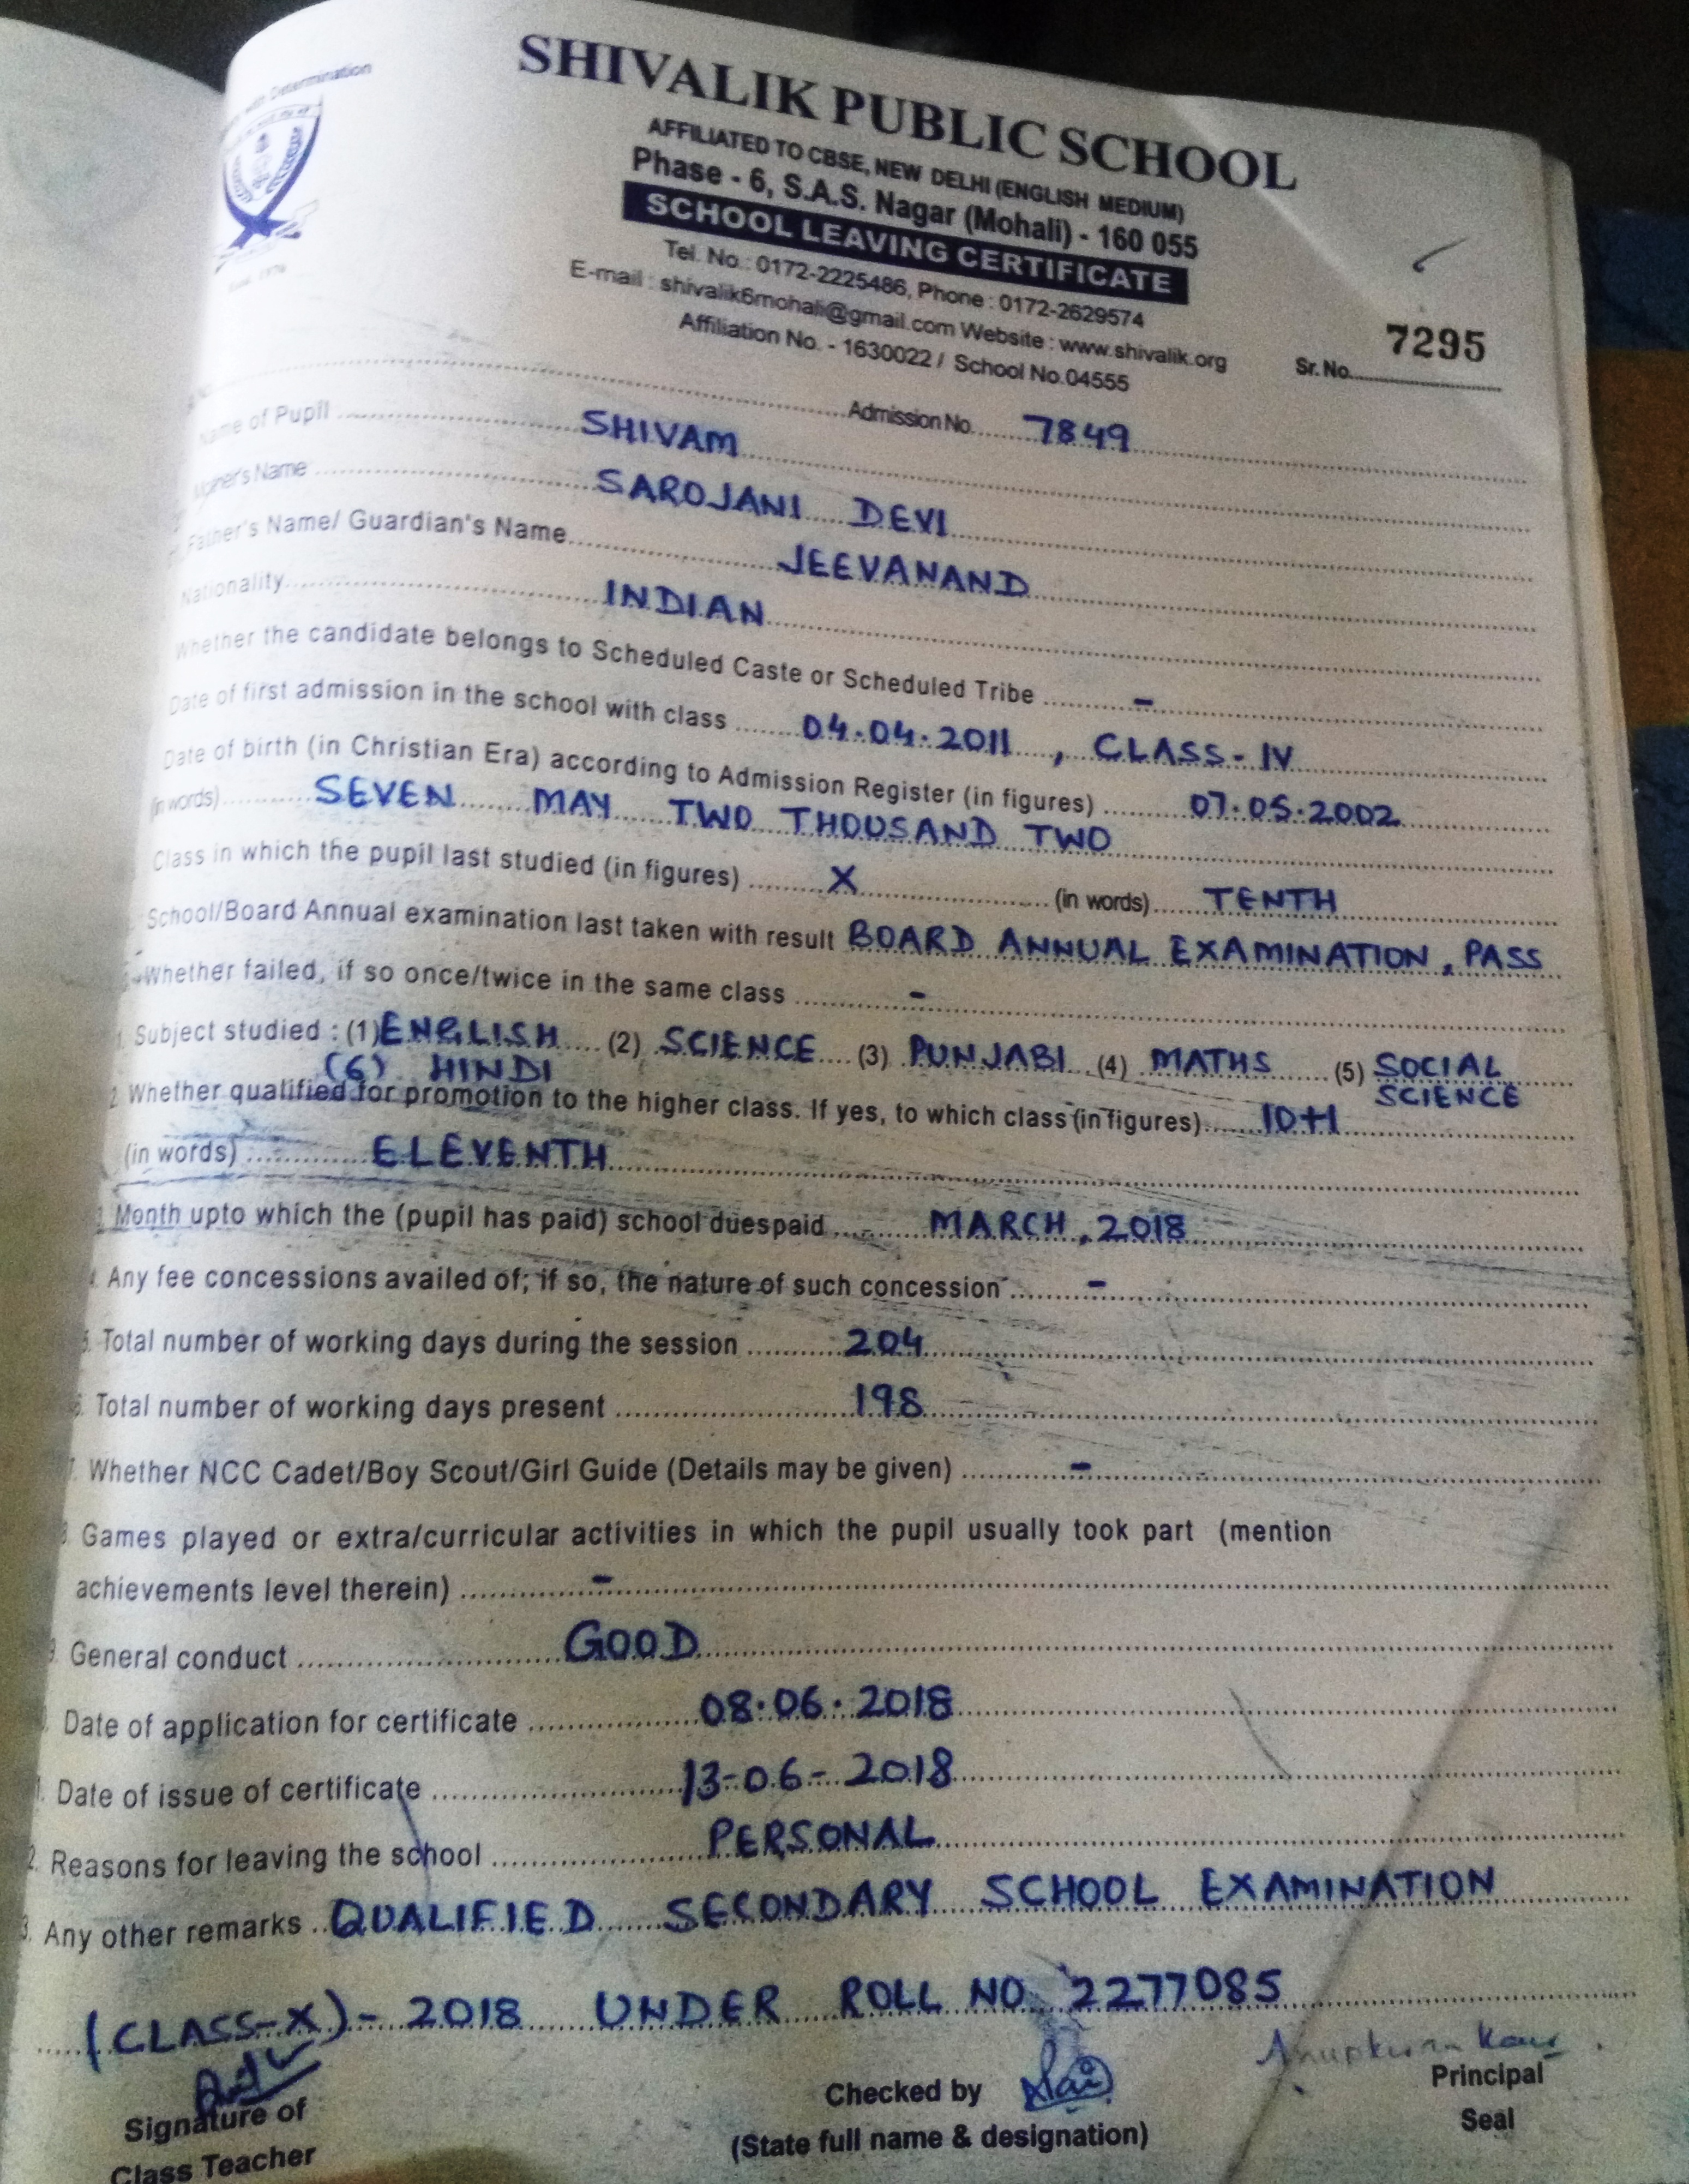 with Determination
SHIVALIK PUBLIC SCHOOL
AFFILIATED TO CBSE, NEW DELHI (ENGLISH MEDIUM)
Phase - 6, S.A.S. Nagar (Mohali) - 160 055
SCHOOL LEAVING CERTIFICATE
Tel. No.: 0172-2225486, Phone : 0172-2629574
E-mail : shivalik6mohali@gmail.com Website : www.shivalik.org
Affiliation No. - 1630022 / School No.04555
Sr. No. 7295
Admission No. 7849
Name of Pupil SHIVAM
Mother's Name SAROJANI DEVI
Father's Name/ Guardian's Name JEEVANAND
Nationality INDIAN
Whether the candidate belongs to Scheduled Caste or Scheduled Tribe -
Date of first admission in the school with class 04.04.2011, CLASS-IV
Date of birth (in Christian Era) according to Admission Register (in figures) 07.05.2002
(in words) SEVEN MAY TWO THOUSAND TWO
Class in which the pupil last studied (in figures) X (in words) TENTH
School/Board Annual examination last taken with result BOARD ANNUAL EXAMINATION, PASS
Whether failed, if so once/twice in the same class -
Subject studied : (1) ENGLISH (2) SCIENCE (3) PUNJABI (4) MATHS (5) SOCIAL SCIENCE
(6) HINDI
Whether qualified for promotion to the higher class. If yes, to which class (in figures) 10+1
(in words) ELEVENTH
Month upto which the (pupil has paid) school duespaid MARCH, 2018
Any fee concessions availed of; if so, the nature of such concession -
Total number of working days during the session 204
Total number of working days present 198
Whether NCC Cadet/Boy Scout/Girl Guide (Details may be given) -
Games played or extra/curricular activities in which the pupil usually took part (mention
achievements level therein) -
General conduct GOOD
Date of application for certificate 08.06.2018
Date of issue of certificate 13-06-2018
Reasons for leaving the school PERSONAL
Any other remarks QUALIFIED SECONDARY SCHOOL EXAMINATION
(CLASS-X)- 2018 UNDER ROLL NO. 2277085
Signature of
Class Teacher
Checked by
(State full name & designation)
Principal
Seal